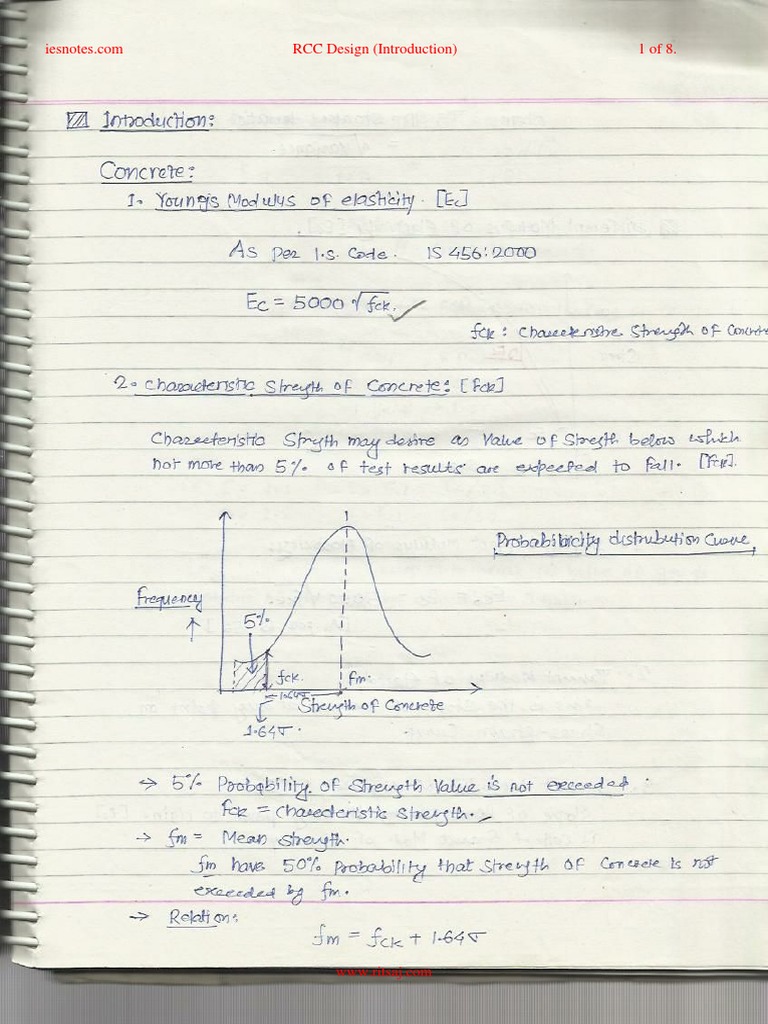 iesnotes.com RCC Design (Introduction) 1 of 8.
Introduction:
Concrete:
1. Young's Modulus of elasticity. [Ec]
As per I.S. Code. IS 456:2000
Ec = 5000 √fck.
fck : Charecteristic Strength of Concrete
2. Characteristic Strength of Concrete: [fck]
Charecteristic Strength may desire as Value of Strength below which
not more than 5% of test results are expected to fall. [fck].
Probabilicity distrubution Curve
Frequency
5%
fck. fm.
1.64σ
Strength of Concrete
1.64σ.
→ 5% Probability of Strength Value is not exceeded.
fck = Charecteristic Strength.
→ fm = Mean Strength.
fm have 50% Probability that Strength of Concrete is not
exceeded by fm.
→ Relation:
fm = fck + 1.64σ
www.ritsaj.com